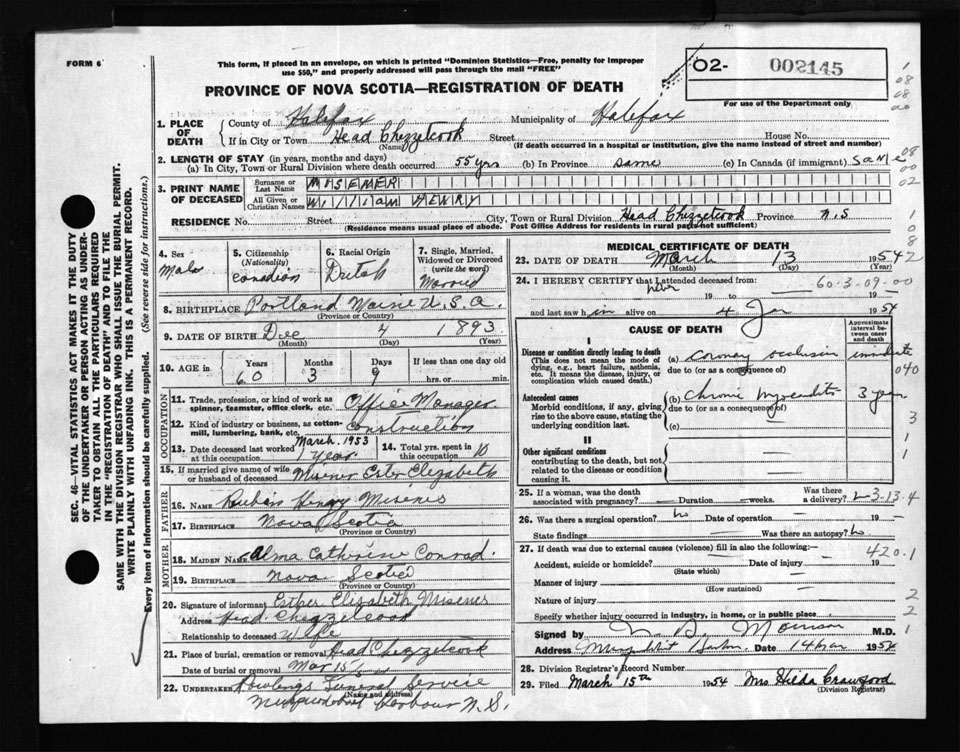 FORM 6
This form, if placed in an envelope, on which is printed "Dominion Statistics—Free, penalty for improper
use $50," and properly addressed will pass through the mail "FREE"
O2- 002145
For use of the Department only
PROVINCE OF NOVA SCOTIA—REGISTRATION OF DEATH
1. PLACE OF DEATH
County of Halifax Municipality of Halifax
If in City or Town Head Chezzetcook Street House No.
(Name) (If death occurred in a hospital or institution, give the name instead of street and number)
2. LENGTH OF STAY (in years, months and days)
(a) In City, Town or Rural Division where death occurred 55 yrs (b) In Province same (c) In Canada (if immigrant) Same
3. PRINT NAME OF DECEASED
Surname or Last Name MISENER
All Given or Christian Names William HENRY
RESIDENCE No. Street City, Town or Rural Division Head Chezzetcook Province N.S
(Residence means usual place of abode. Post Office Address for residents in rural parts not sufficient)
4. Sex Male
5. Citizenship (Nationality) Canadian
6. Racial Origin Dutch
7. Single, Married, Widowed or Divorced (write the word) Married
8. BIRTHPLACE Portland Maine U.S.A.
(Province or Country)
9. DATE OF BIRTH Dec 4 1893
(Month) (Day) (Year)
10. AGE in Years 60 Months 3 Days 9 If less than one day old hrs. or min.
OCCUPATION
11. Trade, profession, or kind of work as spinner, teamster, office clerk, etc. Office Manager
12. Kind of industry or business, as cotton-mill, lumbering, bank, etc. Construction
13. Date deceased last worked at this occupation March. 1953 1 year
14. Total yrs. spent in this occupation 10
15. If married give name of wife or husband of deceased Misener Ester Elizabeth
FATHER
16. NAME Ruben Henry Misener
17. BIRTHPLACE Nova Scotia
(Province or Country)
MOTHER
18. MAIDEN NAME Alma Cathrine Conrad.
19. BIRTHPLACE Nova Scotia
(Province or Country)
20. Signature of informant Esther Elizabeth Misener
Address Head Chezzetcook
Relationship to deceased Wife
21. Place of burial, cremation or removal Head Chezzetcook
Date of burial or removal Mar 15/54
22. UNDERTAKER Rowlings Funeral Service
(Name and address)
Musquodoboit Harbour N.S.
MEDICAL CERTIFICATE OF DEATH
23. DATE OF DEATH March 13 1954
(Month) (Day) (Year)
24. I HEREBY CERTIFY that I attended deceased from: 60.3-09-00
never 19 to 19
and last saw him alive on 4 Jan 1954
CAUSE OF DEATH
Approximate interval between onset and death
I
Disease or condition directly leading to death (a) coronary occlusion immediate
(This does not mean the mode of dying, e.g., heart failure, asthenia, etc. It means the disease, injury, or complication which caused death.)
due to (or as a consequence of)
Antecedent causes (b) chronic myocarditis 3 years
Morbid conditions, if any, giving rise to the above cause, stating the underlying condition last.
due to (or as a consequence of)
(c)
040
II
Other significant conditions
contributing to the death, but not related to the disease or condition causing it.
25. If a woman, was the death associated with pregnancy? Duration weeks. Was there a delivery? 2-3-13-4
26. Was there a surgical operation? no Date of operation 19
State findings Was there an autopsy? no
27. If death was due to external causes (violence) fill in also the following:
420.1
Accident, suicide or homicide? Date of injury 19
(State which)
Manner of injury
(How sustained)
Nature of injury
Specify whether injury occurred in industry, in home, or in public place
Signed by Morrison M.D.
Address Date 14 Mar 1954
28. Division Registrar's Record Number
29. Filed March 15th 1954 Mrs Hilda Crawford
(Division Registrar)
SEC. 46—VITAL STATISTICS ACT MAKES IT THE DUTY
OF THE UNDERTAKER OR PERSON ACTING AS UNDER-
TAKER TO OBTAIN ALL THE PARTICULARS REQUIRED
IN THE "REGISTRATION OF DEATH" AND TO FILE THE
SAME WITH THE DIVISION REGISTRAR WHO SHALL ISSUE THE BURIAL PERMIT.
WRITE PLAINLY WITH UNFADING INK. THIS IS A PERMANENT RECORD.
Every item of Information should be carefully supplied. (See reverse side for instructions.)